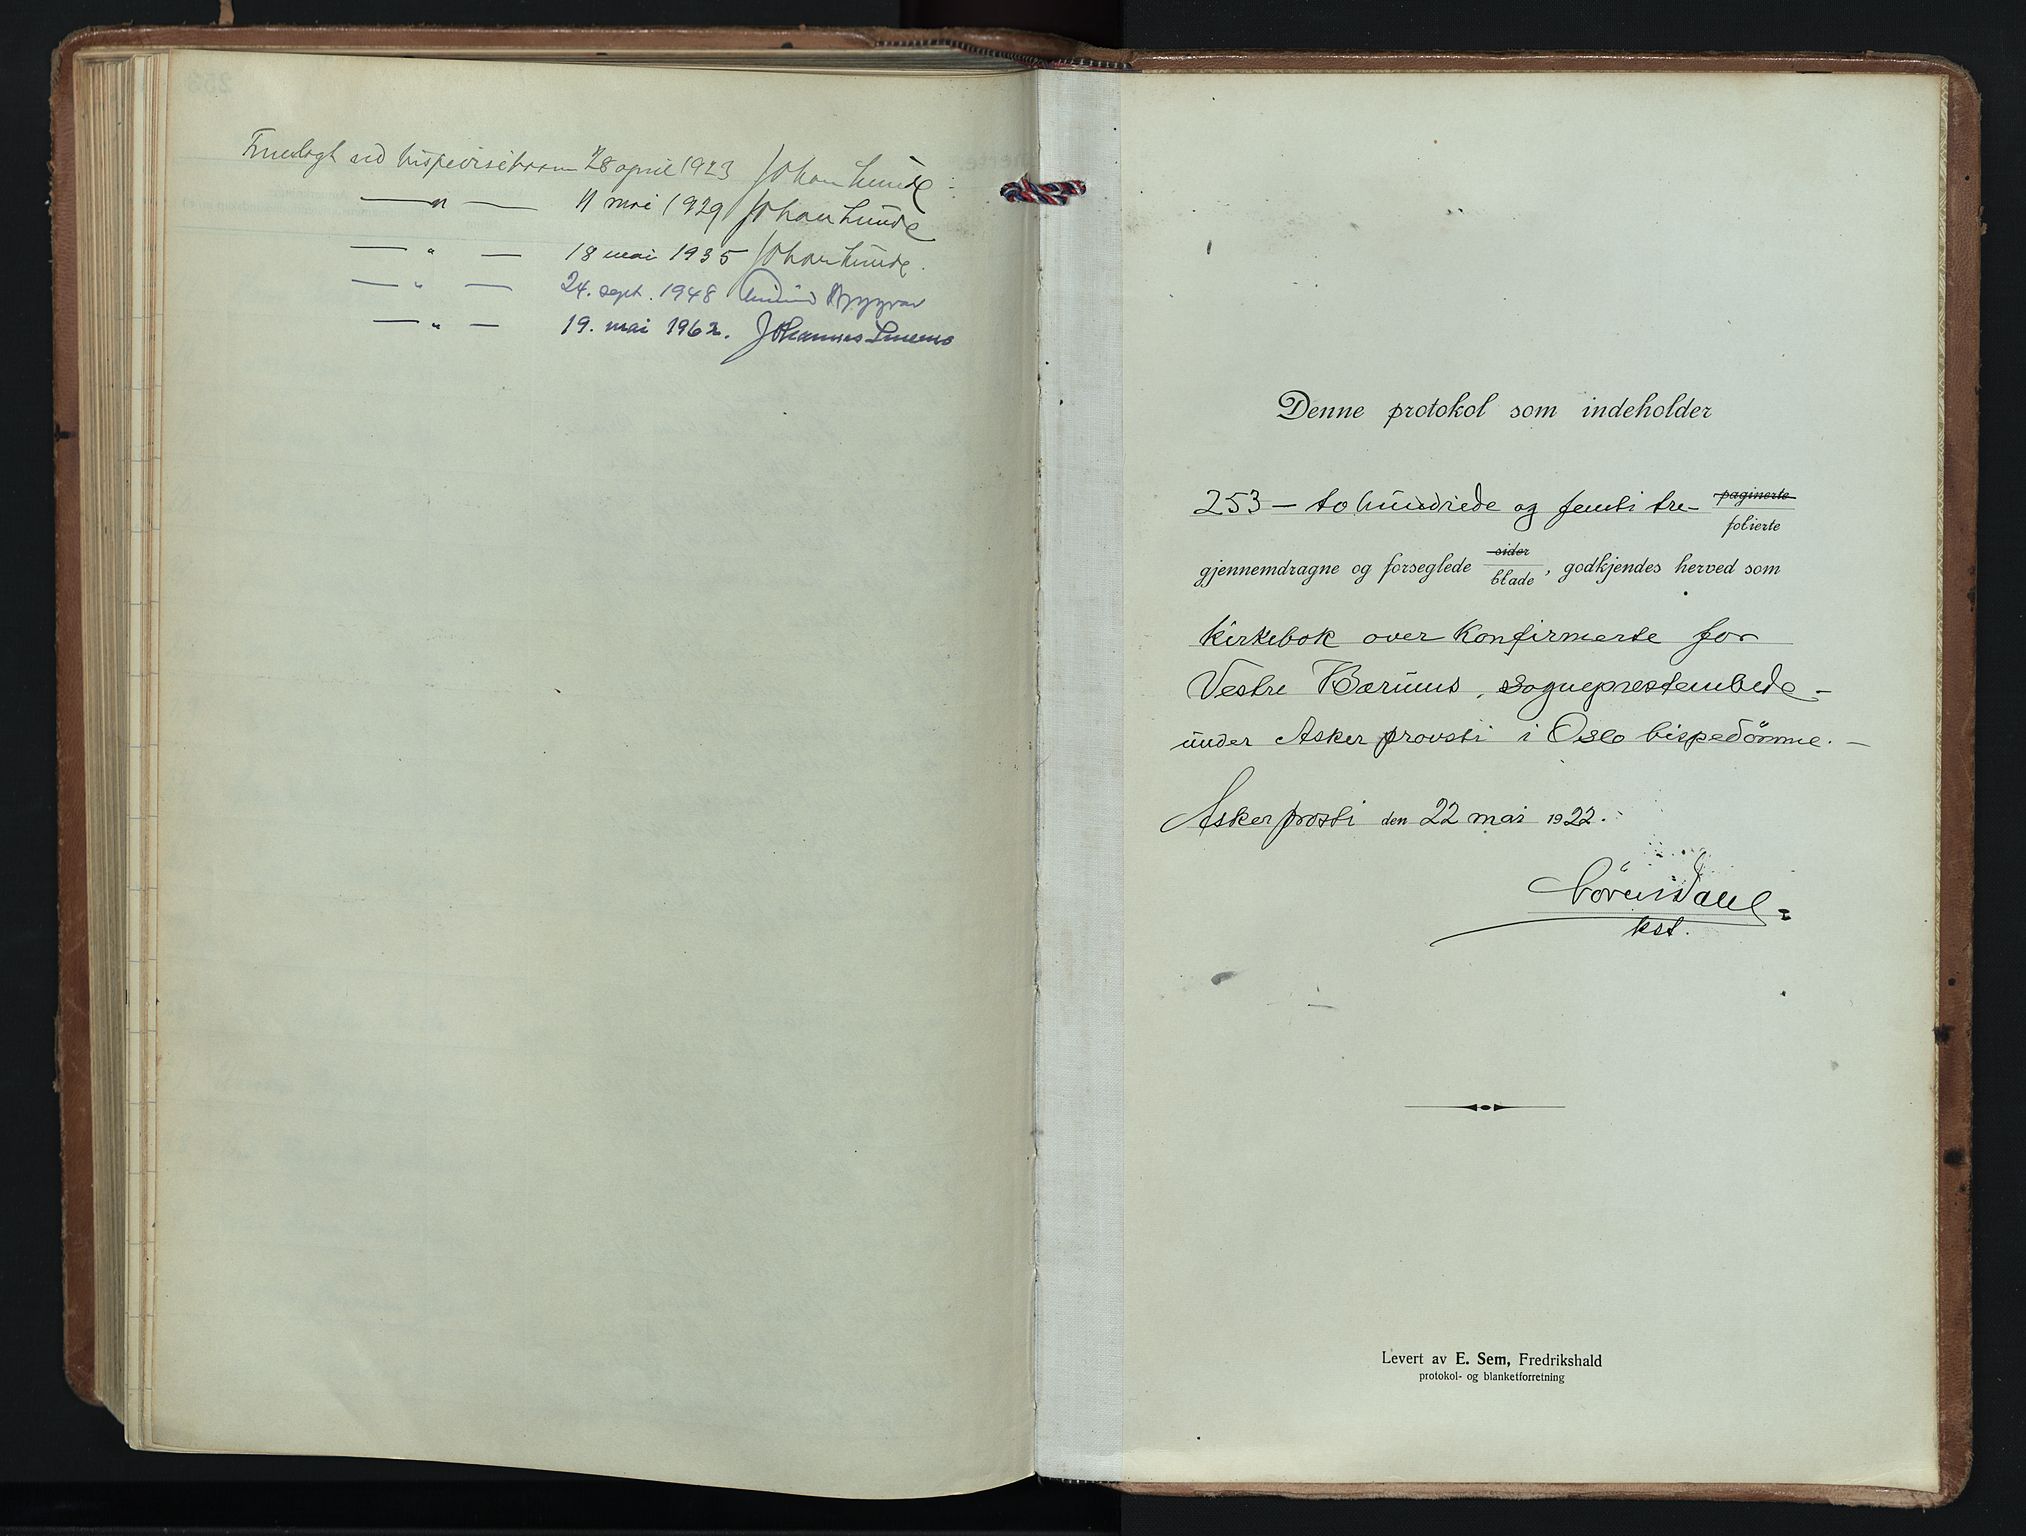 Fremlagt ved bispevisitasen 28 april 1923 Johan Lunde
— " — 11 mai 1929 Johan Lunde
— " — 18 mai 1935 Johan Lunde.
— " — 24. sept. 1948
— " — 19. mai 1962. Johannes Smemo
Denne protokol som indeholder
253 — tohundrede og femti tre — paginerte
folierte
gjennemdragne og forseglede sider
blade, godkjendes herved som
kirkebok over konfirmerte for
Vestre Bærums, sogneprestembede —
under Asker provsti i Oslo bispedømme. —
Asker prosti den 22 mai 1922.
kst.
Levert av E. Sem, Fredrikshald
protokol- og blanketforretning